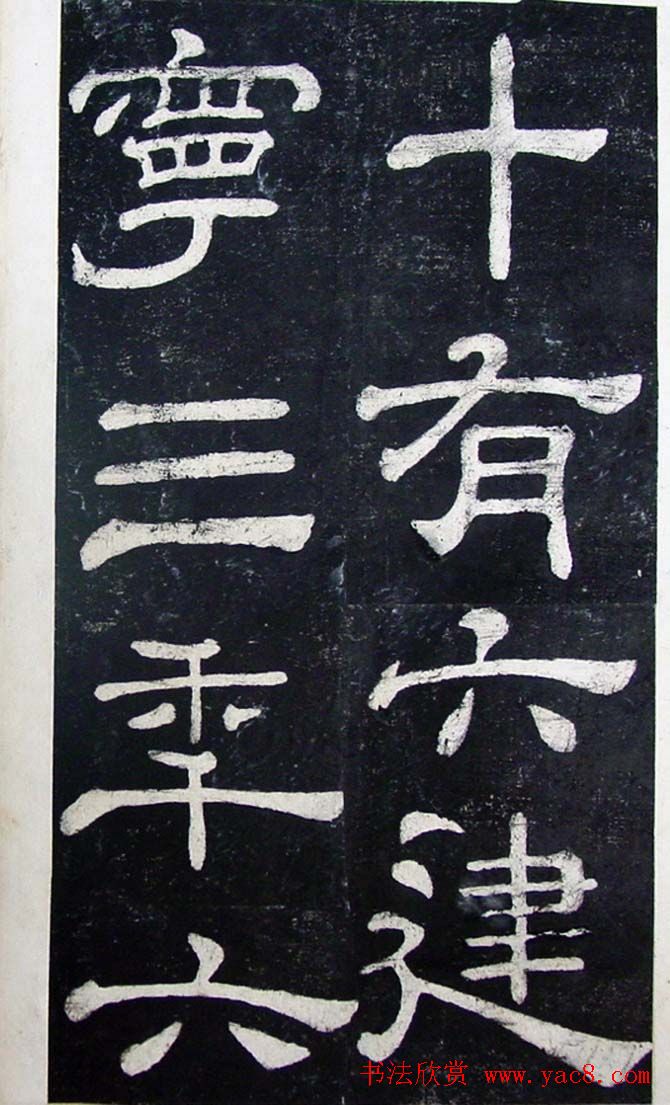 十有六建
寧三季六
书法欣赏 www.yac8.com